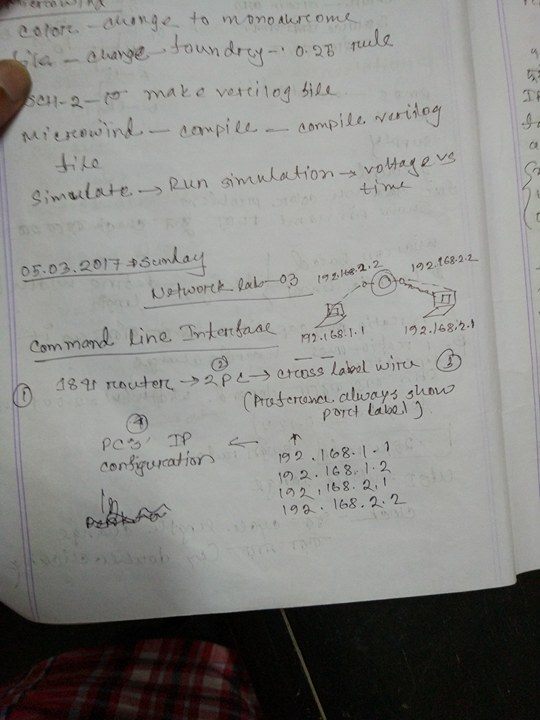 Microwind
Color - change to monochrome
file - change foundrey - 0.25 rule
DSCH-2 - make verilog file
Microwind - compile - compile verilog
file
Simulate → Run simulation → voltage vs
time
05.03.2017 → Sunday
Network lab-03
192.168.2.2
192.168.2.2
192.168.1.1
192.168.2.1
Command Line Interface
① 1841 router → ② 2 PC → cross label wire ③
(Preference always show
port label)
④
PC's IP
configuration
←
192.168.1.1
192.168.1.2
192.168.2.1
192.168.2.2